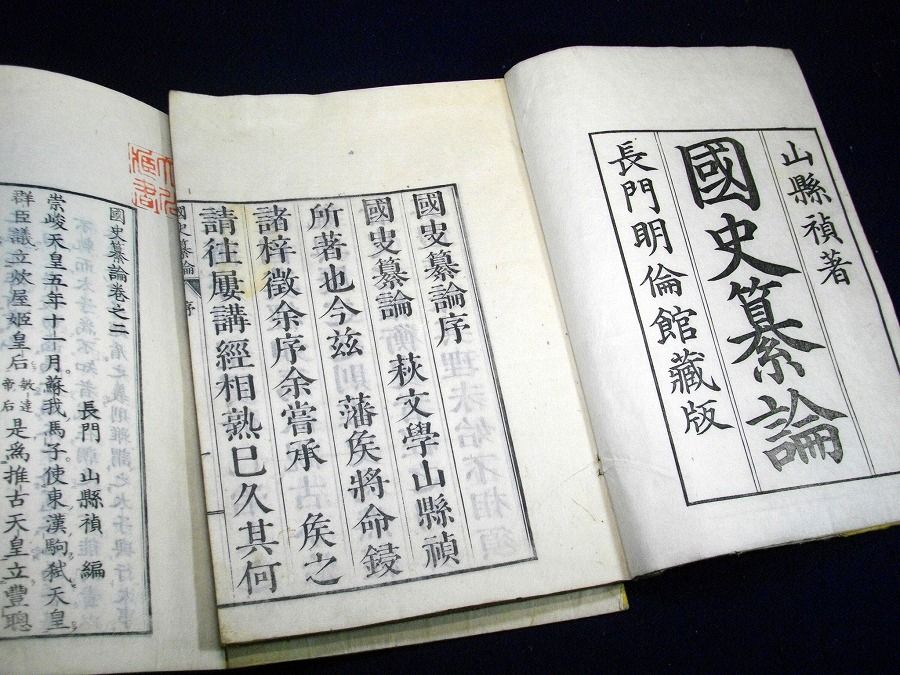 山縣禎著
國史纂論
長門明倫館藏版
國史纂論序
國史纂論 萩文學山縣禎
所著也今茲 藩矦將命鋟
諸梓徵余序余嘗承 矦之
請往屢講經相熟已久其何
國史纂論 序
國史纂論卷之二
長門 山縣禎編
崇峻天皇五年十一月蘇我馬子使東漢駒弑天皇
群臣議立炊屋姬皇后敏達帝后是爲推古天皇立豐聰